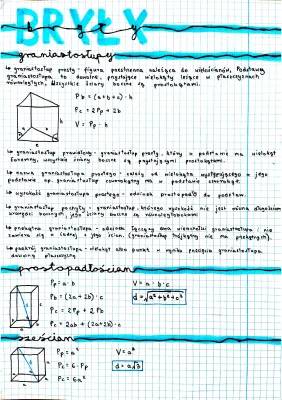 BRYŁY
graniastosłupy
↳ graniastosłup prosty - figura przestrzenna należąca do wielościanów. Podstawy
graniastosłupa to dowolne, przystające wielokąty leżące w płaszczyznach
równoległych. Wszystkie ściany boczne są prostokątami.
Pb = (a+b+c)·h
Pc = 2Pp + Pb
V = Pp · h
↳ graniastosłup prawidłowy - graniastosłup prosty, który w podstawie ma wielokąt
foremny, wszystkie ściany boczne są przystającymi prostokątami.
↳ nazwa graniastosłupa prostego zależy od wielokąta występującego w jego
podstawie np. graniastosłup czworokątny ma w podstawie czworokąt.
↳ wysokość graniastosłupa prostego - odcinek prostopadły do podstaw.
↳ graniastosłup pochyły - graniastosłup, którego wysokość nie jest równa długościom
krawędzi bocznych, jego ściany boczne są równoległobokami
↳ przekątna graniastosłupa - odcinek łączący dwa wierzchołki graniastosłupa i nie
zawiera się w żadnej z jego ścian. (graniastosłup trójkątny nie ma przekątnych).
↳ przekrój graniastosłupa - wielokąt albo punkt - wynik przecięcia graniastosłupa
dowolną płaszczyzną
prostopadłościan
Pp = a·b
V = a·b·c
Pb = (2a+2b)·c
d = √a²+b²+c²
Pc = 2Pp + 2Pb
Pc = 2ab + (2a+2b)·c
sześcian
Pp = a²
V = a³
Pc = 6·Pp
d = a√3
Pc = 6a²